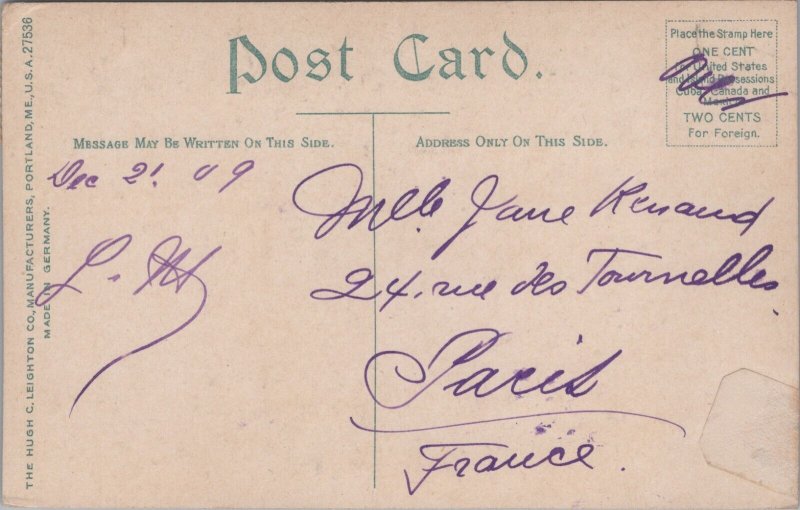 Post Card.
Place the Stamp Here
ONE CENT
United States
and Island Possessions
Cuba, Canada and
Mexico
TWO CENTS
For Foreign.
MESSAGE MAY BE WRITTEN ON THIS SIDE.
ADDRESS ONLY ON THIS SIDE.
Dec 21. 09
L. M
Mlle Jane Renaud
24. rue des Tournelles.
Paris
France.
THE HUGH C. LEIGHTON CO., MANUFACTURERS, PORTLAND, ME., U.S.A. 27536
MADE IN GERMANY.